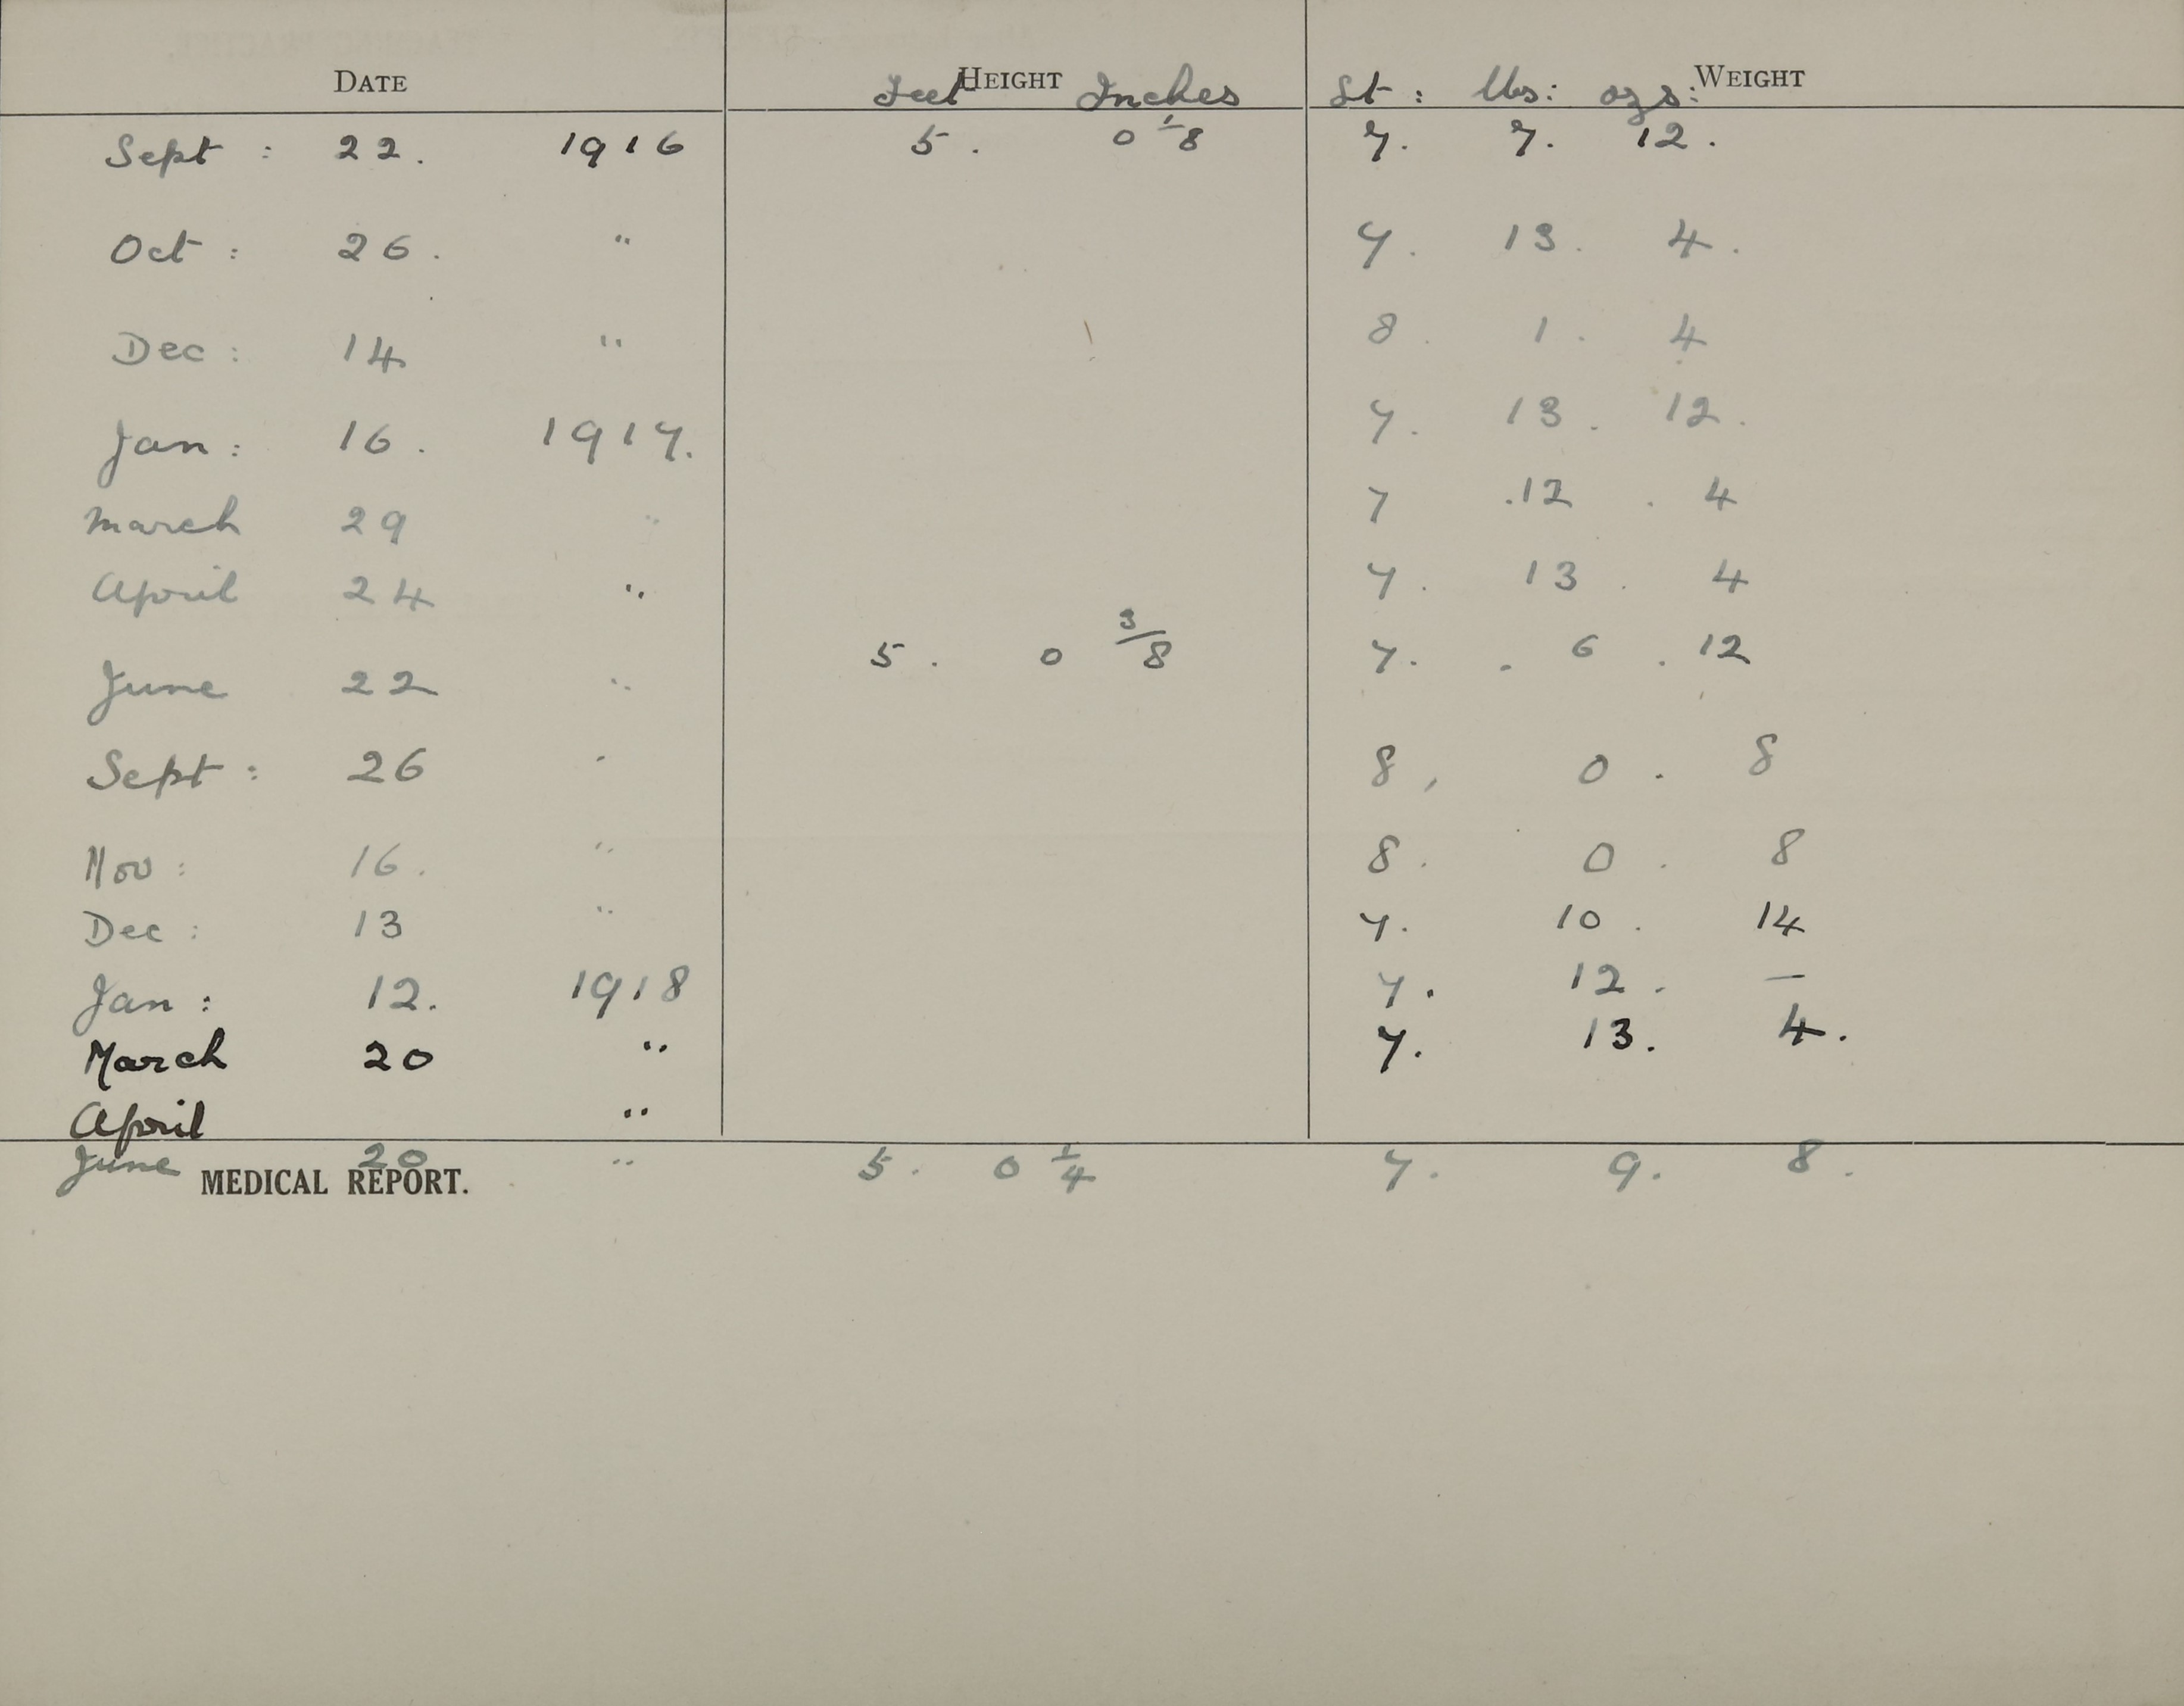 DATE HEIGHT WEIGHT
Feet Inches St: lbs: ozs:
Sept: 22. 1916 5. 0 1/8 7. 7. 12.
Oct: 26. " 7. 13. 4.
Dec: 14 " 8. 1. 4
Jan: 16. 1917. 7. 13. 12.
March 29 " 7 .12 . 4
April 24 " 7. 13. 4
5. 0 3/8 7. . 6 . 12
June 22 "
Sept: 26 " 8, 0. 8
Nov: 16. " 8. 0. 8
Dec: 13 " 7. 10. 14
Jan: 12. 1918 7. 12. —
March 20 " 7. 13. 4.
April "
June 20 " 5. 0 1/4 7. 9. 8.
MEDICAL REPORT.